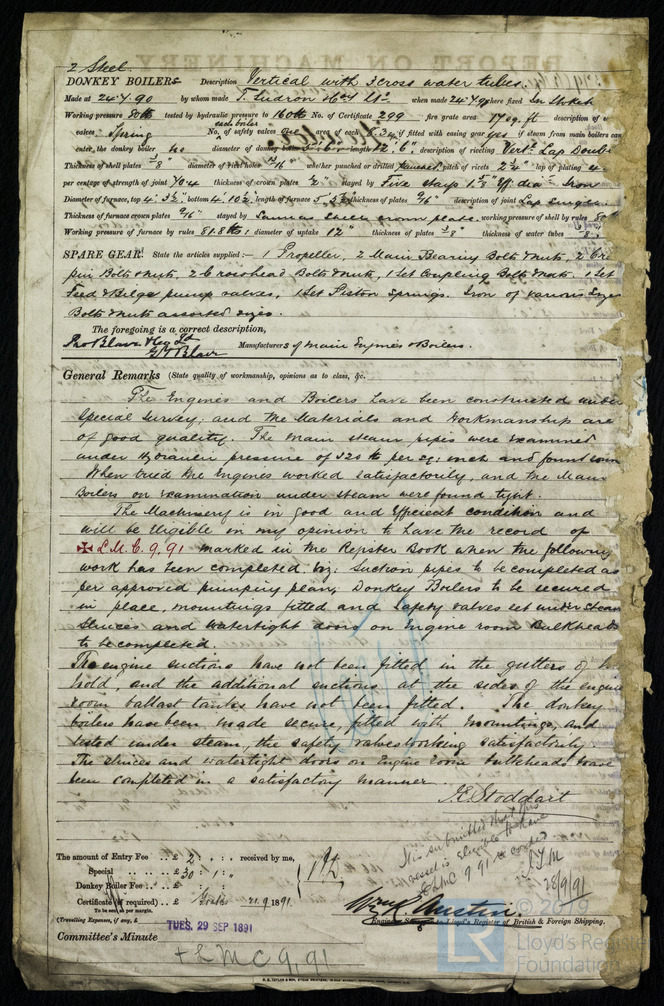 2 Steel
DONKEY BOILERS Description Vertical with 3 cross water tubes.
Made at 24.7.90 by whom made T. Sudron & Co Ld when made 24.7.90 where fixed In Stokehold
Working pressure 80lb tested by hydraulic pressure to 160lb No. of Certificate 299 fire grate area 17 sq. ft description of
each boiler
valves Spring No. of safety valves One area of each if fitted with easing gear yes if steam from main boilers can
enter the donkey boiler no diameter of donkey boiler 5'.6" length 12'.6" description of riveting Vert. Lap Double
Thickness of shell plates 3/8" diameter of rivet holes 13/16" whether punched or drilled punched pitch of rivets 2 3/4" lap of plating
per centage of strength of joint 70.4 thickness of crown plates 1/2" stayed by Five stays 1 5/8" dia Iron
Diameter of furnace, top 4'.3½" bottom 4'.10½ length of furnace thickness of plates 9/16" description of joint Lap single
Thickness of furnace crown plates 9/16" stayed by Same as shell crown plate. working pressure of shell by rules 80
Working pressure of furnace by rules 81.8 lb diameter of uptake 12" thickness of plates 3/8" thickness of water tubes 3/8"
SPARE GEAR. State the articles supplied:— 1 Propeller, 2 Main Bearing Bolts & Nuts, 2
pin Bolts & Nuts, 2 Crosshead Bolts & Nuts, 1 Set Coupling Bolts & Nuts 1 Set
Feed & Bilge pump valves, 1 Set Piston Springs. Iron of various sizes
Bolts & Nuts assorted sizes.
The foregoing is a correct description,
Blair & Co Ld
G. T. Blair Manufacturers of Main Engines & Boilers.
General Remarks (State quality of workmanship, opinions as to class, &c.
The Engines and Boilers have been constructed under
Special Survey, and the Materials and Workmanship are
of good quality. The main steam pipes were examined
under Hydraulic pressure of 320 lb per sq: inch and found
When tried the Engines worked satisfactorily, and the Main
Boilers on examination under steam were found tight.
The Machinery is in good and Efficient condition and
will be Eligible in my opinion to have the record of
✠ L.M.C. 9,91 marked in the Register Book when the following
work has been completed. viz: Suction pipes to be completed as
per approved pumping plan; Donkey Boilers to be secured
in place, mountings fitted and Safety valves set under steam
Sluices and watertight doors on Engine room Bulkheads
to be completed.
The engine suctions have not been fitted in the gutters of
hold, and the additional suctions at the sides of the engine
room ballast tanks have not been fitted. The donkey
boilers have been made secure, fitted with mountings, and
tested under steam, the safety valves working satisfactorily
The sluices and watertight doors on Engine room bulkheads have
been completed in a satisfactory manner
Stoddart
It is submitted that this
vessel is eligible to have
+ LMC 9 91 recorded
28/9/91
The amount of Entry Fee .. £ 2 : : received by me,
Special .. .. £ 30 : 1 :
Donkey Boiler Fee .. .. £ : :
Certificate (if required) .. £ 21.9.1891.
To be sent as per margin.
(Travelling Expenses, if any, £
Austin
Engineer Surveyor to Lloyd's Register of British & Foreign Shipping.
TUES. 29 SEP 1891
Committee's Minute
+ LMC 9,91
© 2019
LR Lloyd's Register
Foundation